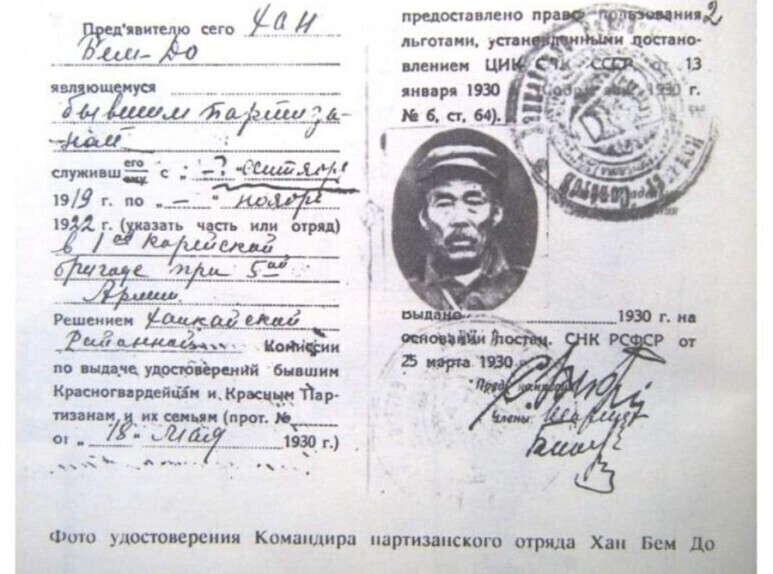 Пред'явителю сего Хан
Бем-До
являющемуся
бывшим партиза-
ном
служивш его ему с „ –? сентября
1919 г. по „ – “ ноябрь
1922 г. (указать часть или отряд)
в 1ой Корейской
бригаде при 5ой
Армии
Решением Ханкайской
Районной Комиссии
по выдаче удостоверений бывшим
Красногвардейцам и Красным Пар-
тизанам и их семьям (прот. №
от „ 18 “ мая 1930 г.)
2
предоставлено право пользования
льготами, установленными постано-
влением ЦИК СНК СССР от 13
января 1930 г. (Собр. зак. 1930 г.
№ 6, ст. 64).
Выдано 1930 г. на
основании постан. СНК РСФСР от
25 марта 1930 г.
Пред. комиссии
Члены
Фото удостоверения Командира партизанского отряда Хан Бем До